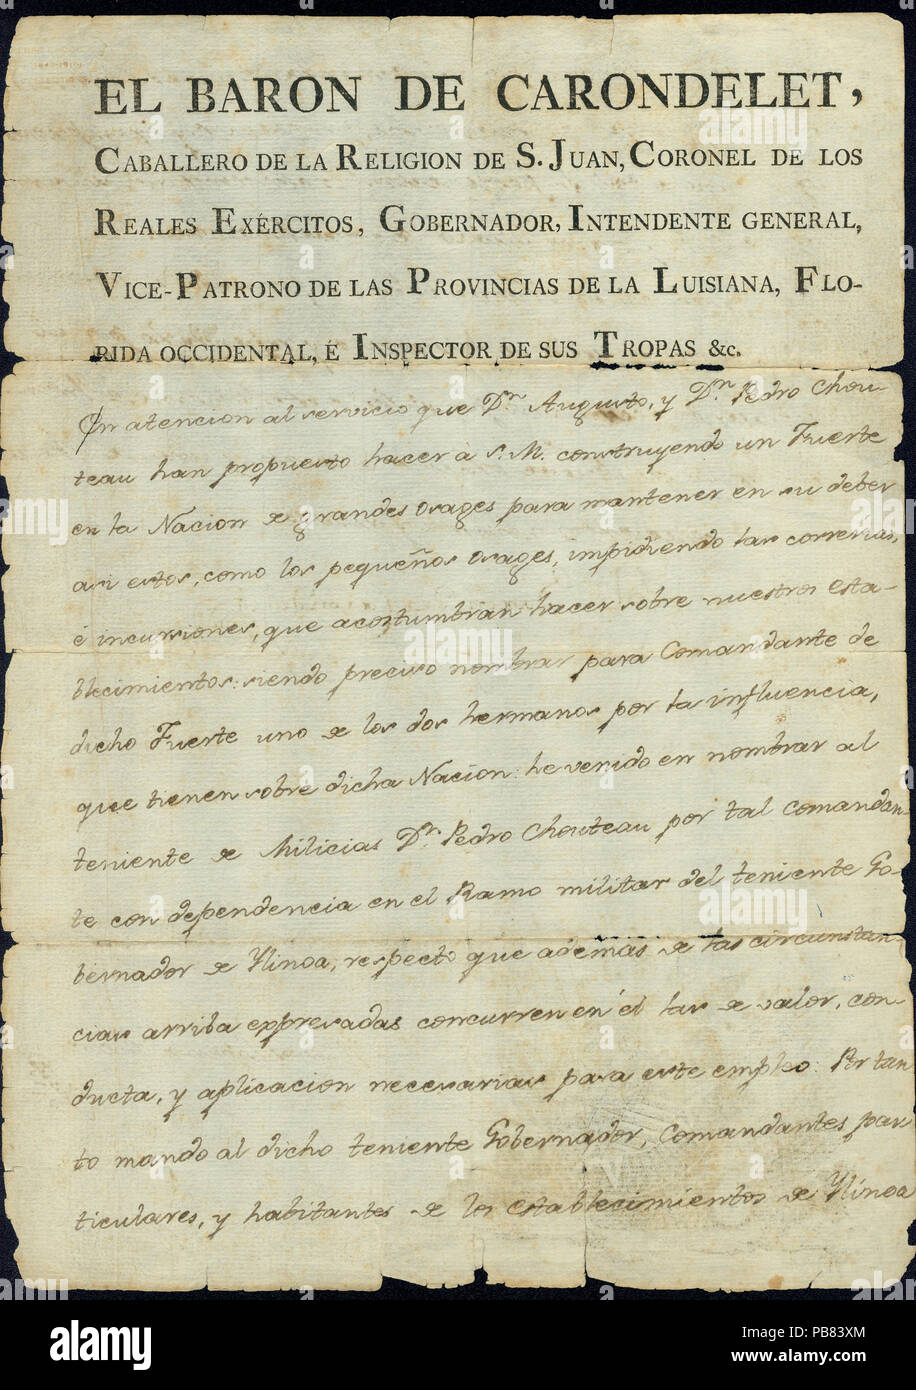 EL BARON DE CARONDELET,
CABALLERO DE LA RELIGION DE S. JUAN, CORONEL DE LOS
REALES EXÉRCITOS, GOBERNADOR, INTENDENTE GENERAL,
VICE-PATRONO DE LAS PROVINCIAS DE LA LUISIANA, FLO-
RIDA OCCIDENTAL, É INSPECTOR DE SUS TROPAS &c.
En atencion al servicio que Dn. Augusto, y Dn. Pedro Chou-
teau han propuesto hacer à S. M. construyendo un Fuerte
en la Nacion de grandes Osages para mantener en su deber
asi estos, como los pequeños Osages, impidiendo las correrias,
é incursiones, que acostumbran hacer sobre nuestros esta-
blecimientos: siendo preciso nombrar para Comandante de
dicho Fuerte uno de los dos hermanos por la influencia,
que tienen sobre dicha Nacion: he venido en nombrar al
teniente de Milicias Dn. Pedro Chouteau por tal comandan-
te con dependencia en el Ramo militar del teniente Go-
bernador de Ylinoa, respecto que ademas de las circunstan-
cias arriba expresadas concurren en el las de valor, con-
ducta, y aplicacion necesarias para este empleo: Por tan
to mando al dicho teniente Gobernador, Comandantes par
ticulares, y habitantes de los establecimientos de Ylinoa
alamy
PB83XM
www.alamy.com